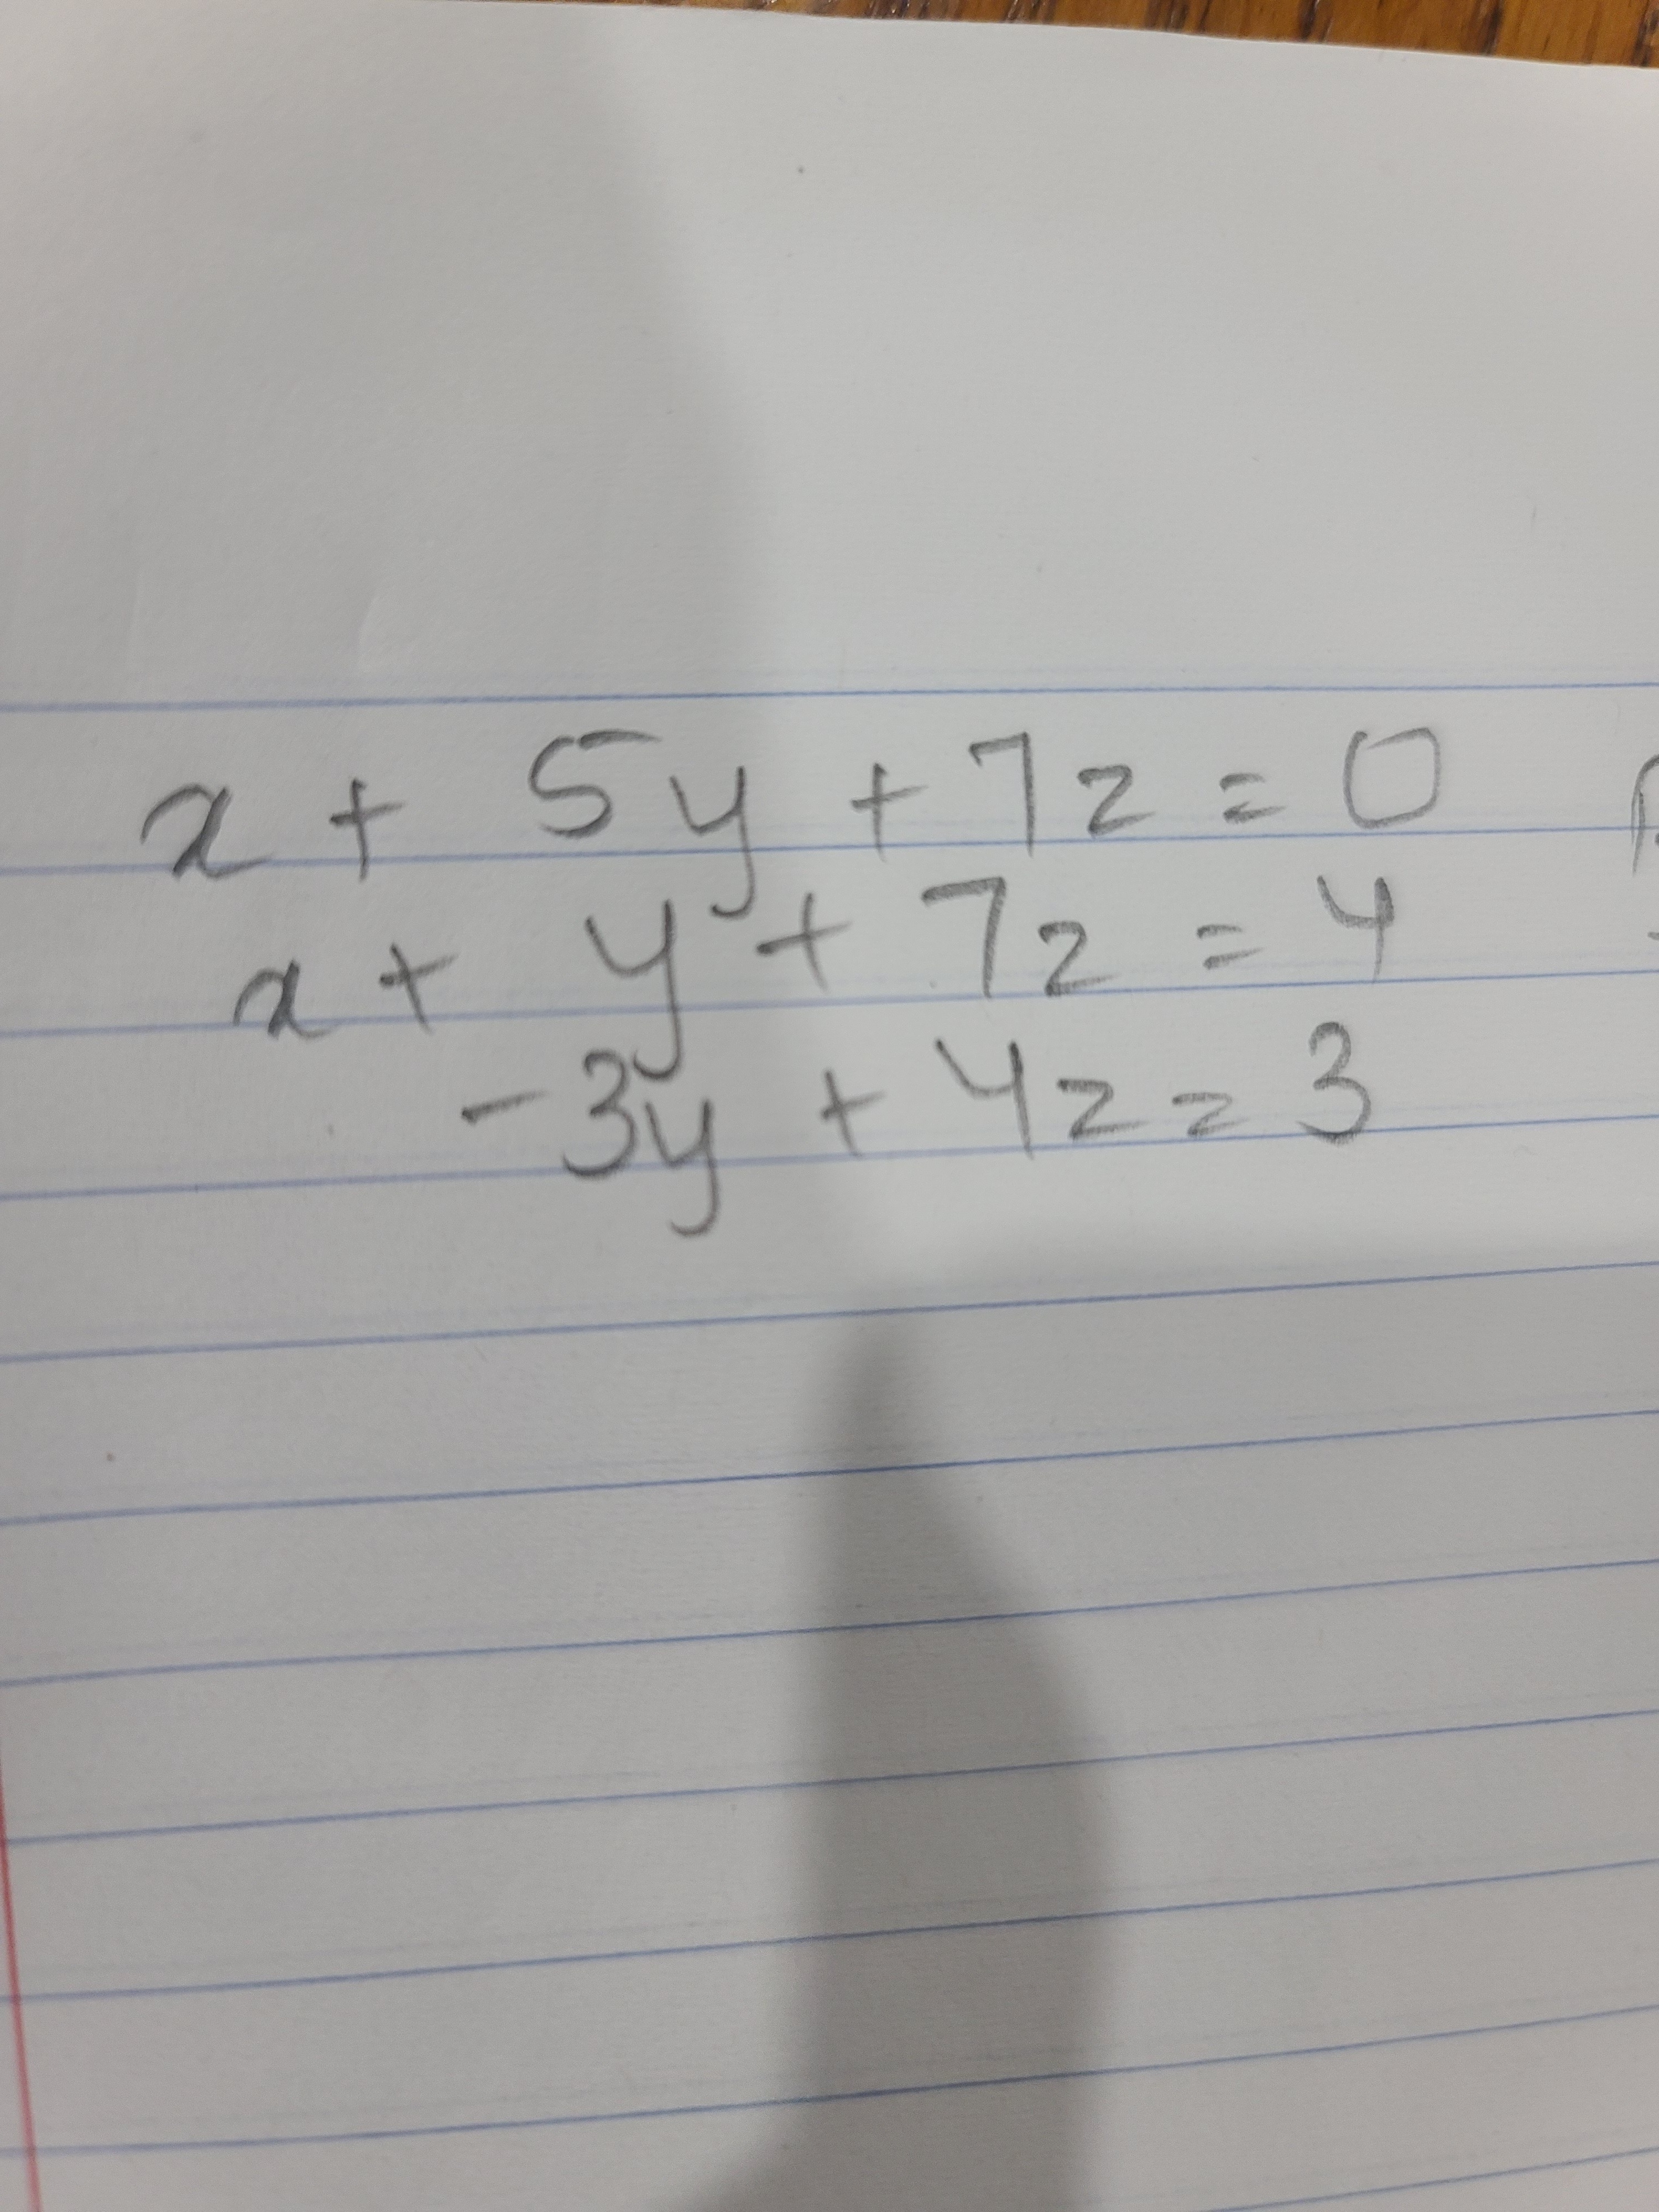 x + 5y + 7z = 0
x + y + 7z = 4
-3y + 4z = 3